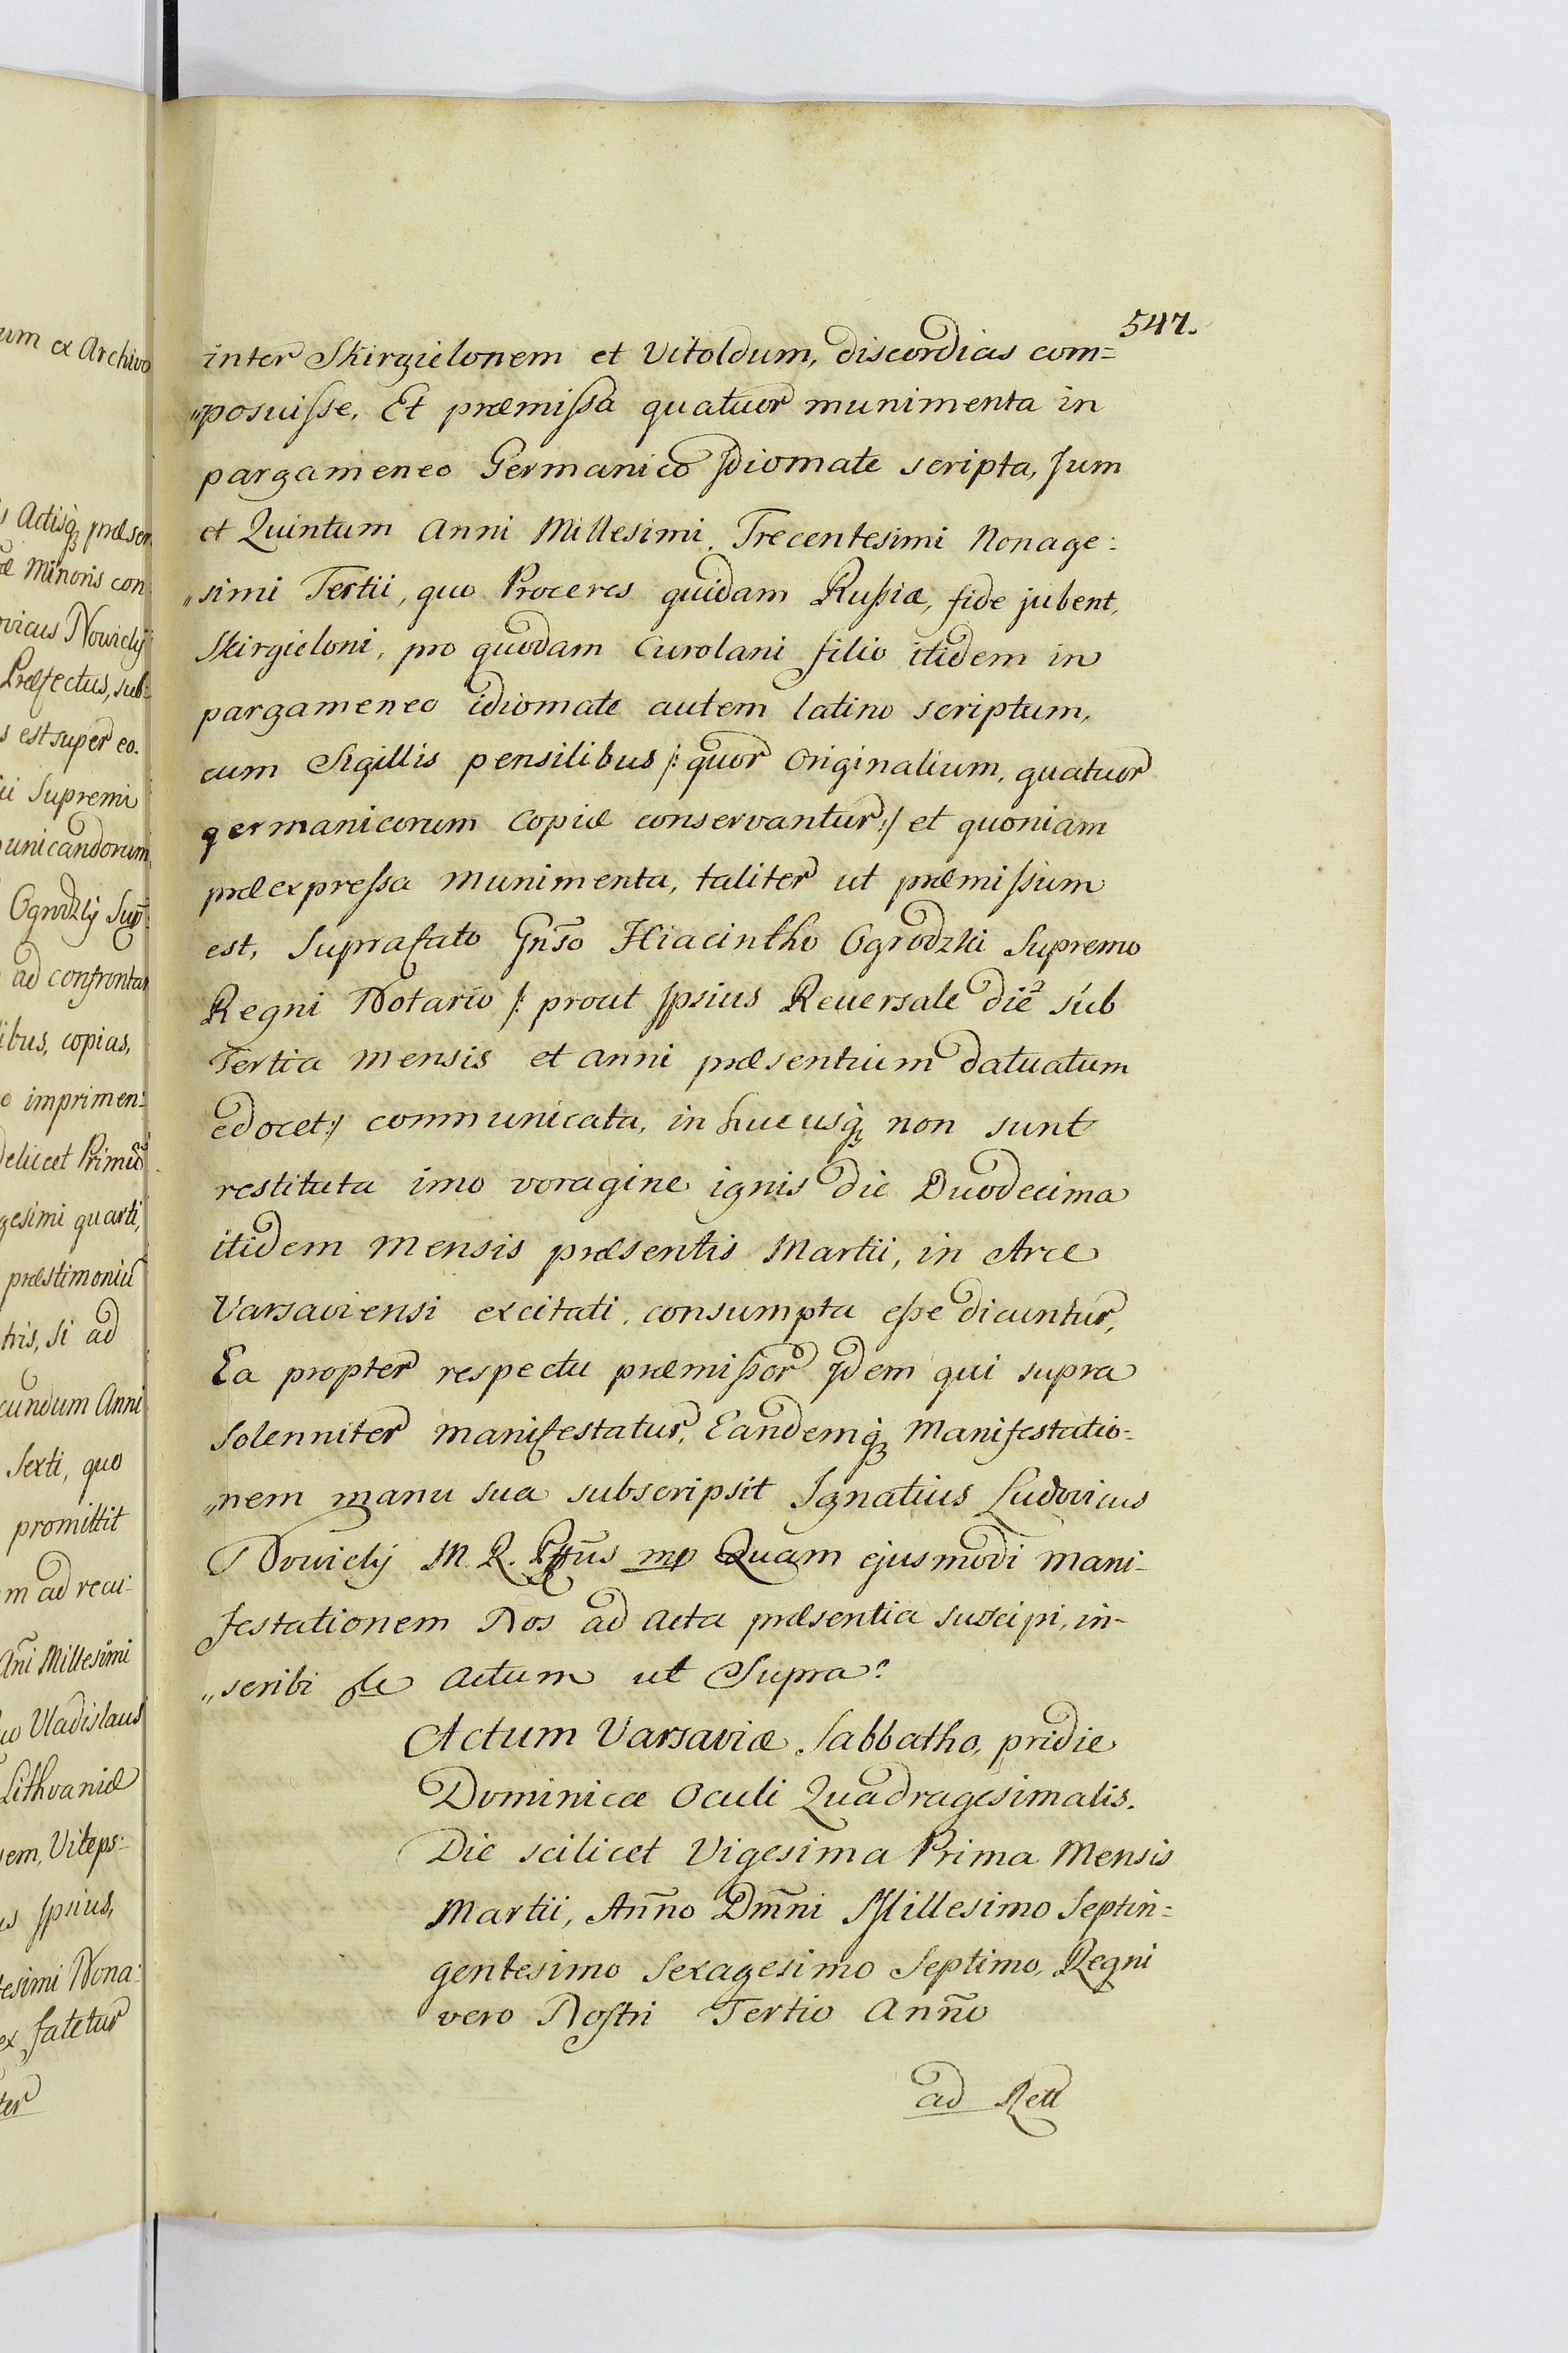 547.
inter Skirgielonem et Vitoldum, discordias com=
„posuisse. Et præmissa quatuor munimenta in
pargameneo Germanico Idiomate scripta, tum
et Quintum Anni Millesimi Trecentesimi Nonage:
„simi Tertii, quo Proceres quidam Russiæ, fide jubent,
Skirgieloni, pro quodam Curolani filio itidem in
pargameneo idiomate autem latino scriptum,
cum Sigillis pensilibus /: quor Originalium, quatuor
germanicorum Copiæ conservantur :/ et quoniam
præexpressa munimenta, taliter ut præmissum
est, Suprafato Gnso Hiacintho Ogrodzki Supremo
Regni Notario /: prout Ipsius Reversale die sub
Tertia mensis et anni præsentium datuatum
edocet :/ communicata, in huc usq non sunt
restituta imo voragine ignis die Duodecima
itidem mensis præsentis Martii, in Arce
Varsaviensi excitati, consumpta esse dicuntur,
Ea propter respectu præmissor Idem qui supra
Solenniter manifestatur, Eandemq Manifestatio=
„nem manu sua subscripsit Ignatius Ludovicus
Nowicky M. R. mp Quam ejusmodi mani-
festationem Nos ad acta præsentia suscipi, in-
„scribi Actum ut Supra.
Actum Varsaviæ Sabbatho, pridie
Dominicæ Oculi Quadragesimalis.
Die scilicet Vigesima Prima Mensis
Martii, Anno Dmni Millesimo Septin=
gentesimo Sexagesimo Septimo, Regni
vero Nostri Tertio Anno
ad Rell
um ex Archivo
Actisq præsen
Minoris con
vicus Nowicky
Præfectus, sub=
s est super eo.
ii Supremi
unicandorum
Ogrodzky Sup
ad confrontan
ibus, copias,
o imprimen=
delicet Primu
gesimi quarti,
præstimoniu
tris, si ad
cundum Anni
Sexti, quo
promittit
m ad recu=
Ani Millesimi
uo Vladislaus
Lithvaniæ
sem, Viteps=
us Ipsius,
tesimi Nona:
ex fatetur
ter